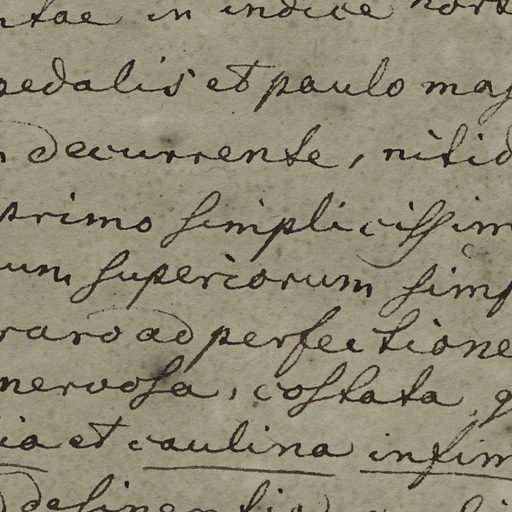 ntae in indice hort
pedalis et paulo maj
decurrente, nitid
primo simplicissim
um superiorum simp
raro ad perfectione
nervosa, costata, q
ia et caulina infim
desinentia